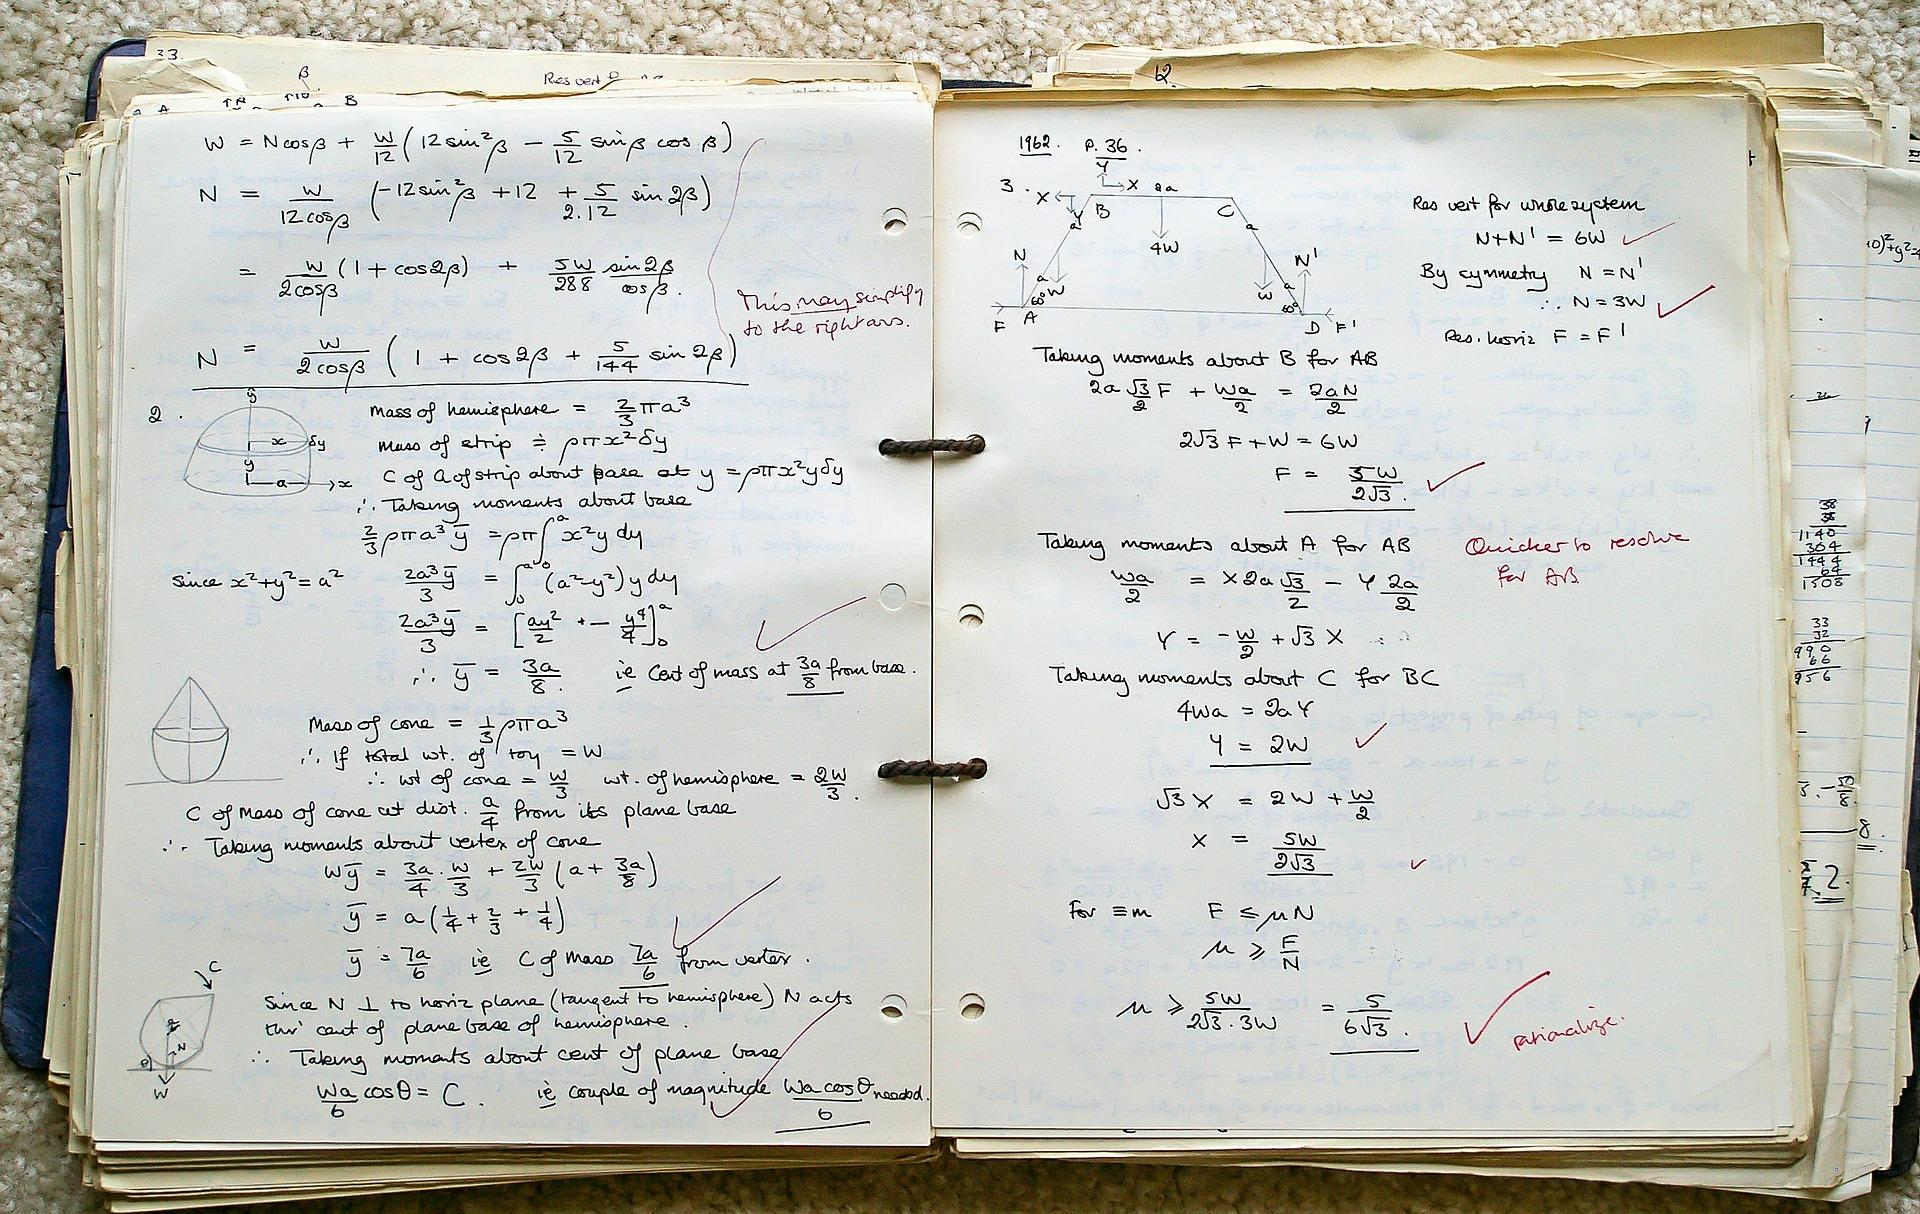 33.
β
Res vert
A
B
W = N cosβ + W/12 (12 sin²β − 5/12 sinβ cosβ)
N = W/12cosβ (−12sin²β + 12 + 5/2.12 sin 2β)
= W/2cosβ (1 + cos2β) + 5W/288 sin2β/cosβ.
This may simplify
to the right ans.
N = W/2cosβ (1 + cos2β + 5/144 sin 2β)
2.
y
x δy
y
a x
Mass of hemisphere = 2/3 πa³
Mass of strip ≑ ρπx²δy
C of G of strip about base at y = ρπx²yδy
∴ Taking moments about base
2/3 ρπa³ȳ = ρπ∫ᵃ₀ x²y dy
Since x²+y²=a² 2a³ȳ/3 = ∫ᵃ₀ (a²−y²) y dy
2a³ȳ/3 = [ay²/2 − y⁴/4]ᵃ₀
∴ ȳ = 3a/8. ie Cent of mass at 3a/8 from base.
Mass of cone = 1/3 ρπa³
∴ If total wt. of toy = W
∴ wt of cone = W/3 wt. of hemisphere = 2W/3.
C of Mass of cone at dist. a/4 from its plane base
∴ Taking moments about vertex of cone
Wȳ = 3a/4 . W/3 + 2W/3 (a + 3a/8)
ȳ = a(1/4 + 2/3 + 1/4)
ȳ = 7a/6 ie C of Mass 7a/6 from vertex.
C
N
θ
W
Since N ⊥ to horiz plane (tangent to hemisphere) N acts
thr' cent of plane base of hemisphere.
∴ Taking moments about cent of plane base
Wa/6 cosθ = C. ie couple of magnitude Wa cosθ/6 needed.
12
1962. P. 36.
3.
Y
X X 2a
Y B C
a a
4W
N N'
a W W a
60° 60°
F A D F'
Res vert for whole system
N+N' = 6W
By symmetry N = N'
∴ N = 3W
Res. horiz F = F'
Taking moments about B for AB
2a √3/2 F + Wa/2 = 2aN/2
2√3 F + W = 6W
F = 5W/2√3.
Taking moments about A for AB
Quicker to resolve
for AB
Wa/2 = X 2a √3/2 − Y 2a/2
Y = −W/2 + √3 X
Taking moments about C for BC
4Wa = 2aY
Y = 2W
√3 X = 2W + W/2
X = 5W/2√3
for ≡m F ≤ μN
μ ⩾ F/N
μ ⩾ 5W/2√3 . 3W = 5/6√3.
rationalize.
38
38
1140
304
1444
64
1508
33
32
990
66
956
8.
2.